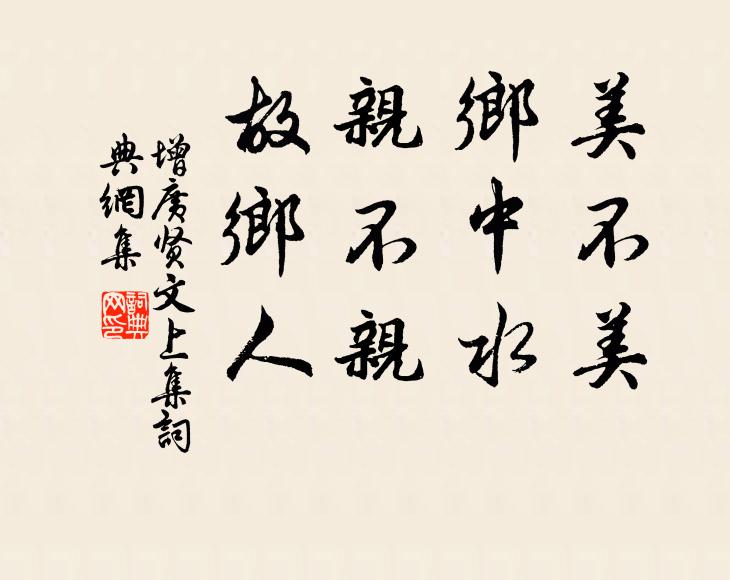 美不美
鄉中水
親不親
故鄉人
增广贤文上集詞
典網集
詞典
网印